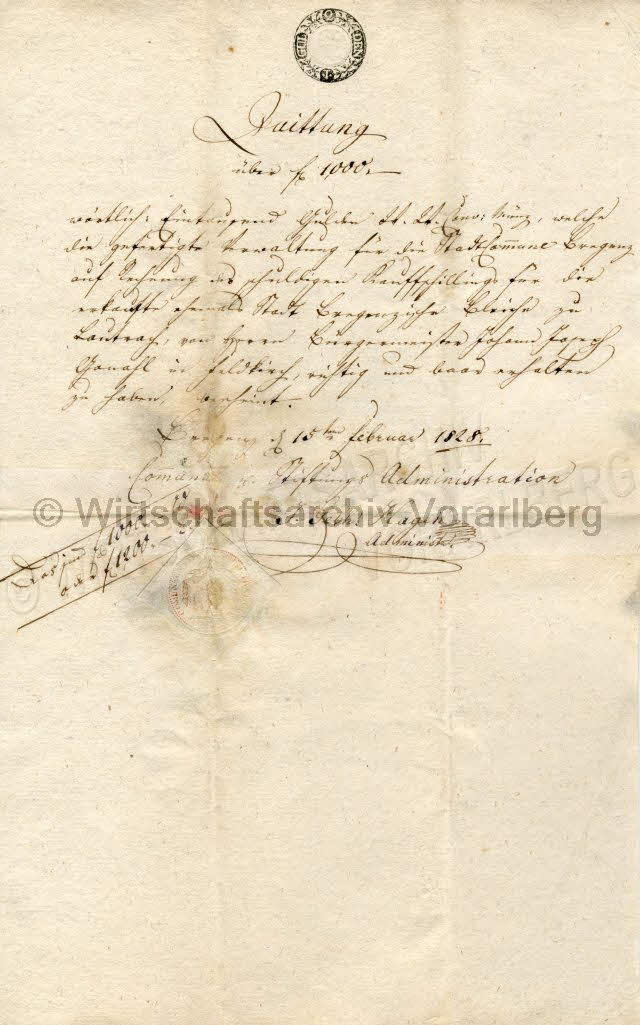 Quittung
über f 1000.
wörtlich: Eintausend Gulden W. W. Conv: Münz, welche
die gefertigte Verwaltung für die Stadtkomune Bregenz
auf Rechnung des schuldigen Kaufschillings für die
erkaufte ehemals Stadt Bregenzische Bleiche zu
Lautrach, von Herrn Bürgermeister Johann Joseph
Ganahl in Feldkirch, richtig und baar erhalten
zu haben, bescheint.
Bregenz d 15ten Februar 1828.
Comunal Stiftungs Administration
Administ
f 1000
oder f 1200.
© Wirtschaftsarchiv Vorarlberg